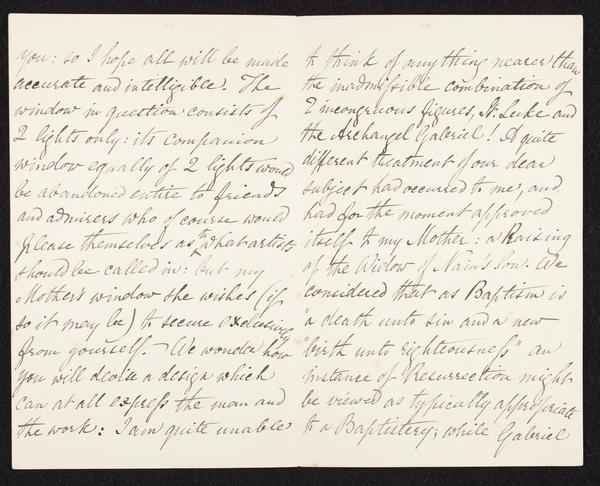 you: so I hope all will be made
accurate and intelligible. The
window in question consists of
2 lights only: its companion
window equally of 2 lights would
be abandoned entire to friends
and admirers who of course would
please themselves as to what artists
should be called in: but my
Mother's window she wishes (if
so it may be) to secure exclusively
from yourself. We wonder how
you will devise a design which
can at all express the man and
the work: I am quite unable
to think of anything nearer than
the inadmissible combination of
2 incongruous figures, St. Luke and
the Archangel Gabriel! A quite
different treatment of our dear
subject had occurred to me, and
had for the moment approved
itself to my Mother: a Raising
of the Widow of Nain's Son. We
considered that as Baptism is
"a death unto sin and a new
birth unto righteousness" an
instance of Resurrection might
be viewed as typically appropriate
to a Baptistery; while Gabriel